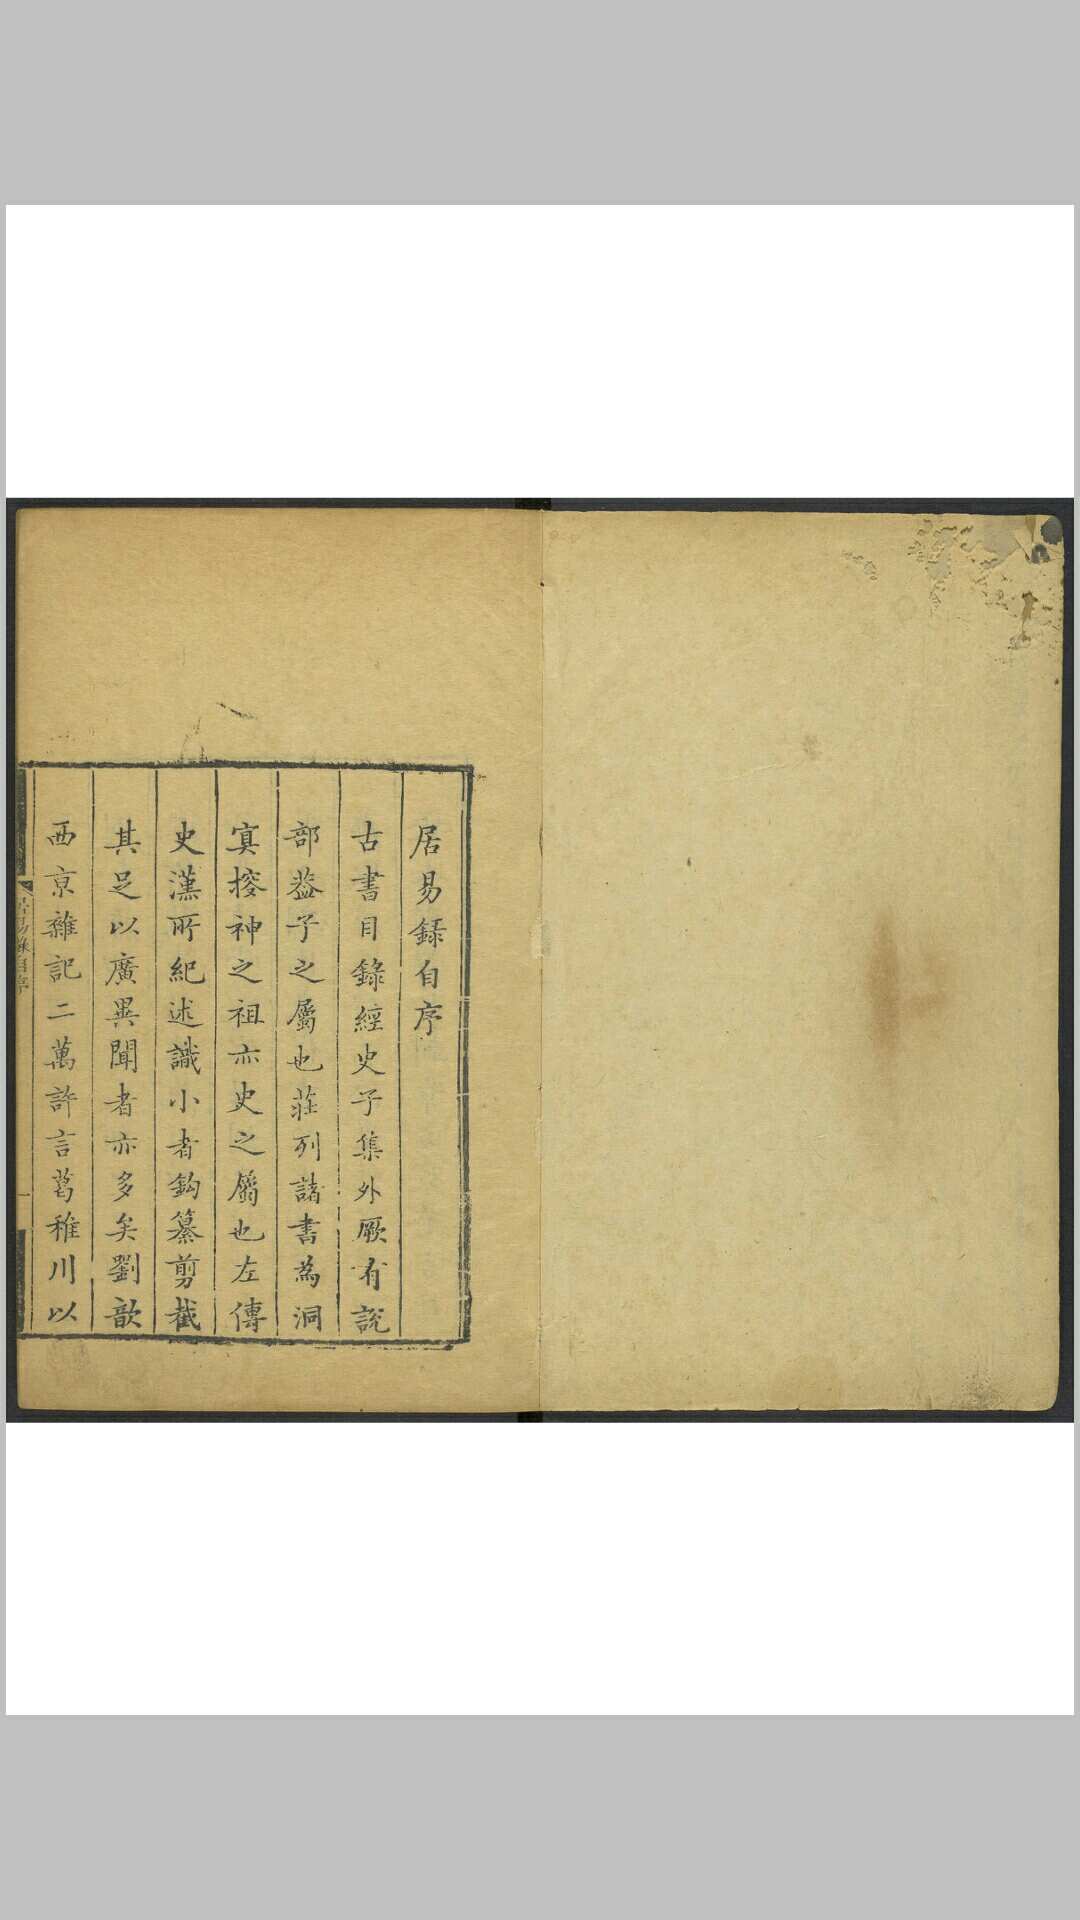 居易録自序
古書目錄經史子集外厥有說
部葢子之屬也莊列諸書為洞
冥搜神之祖亦史之屬也左傳
史漢所紀述識小者鈎纂剪截
其足以廣異聞者亦多矣劉歆
西京雜記二萬許言葛稚川以
居易錄自序
一